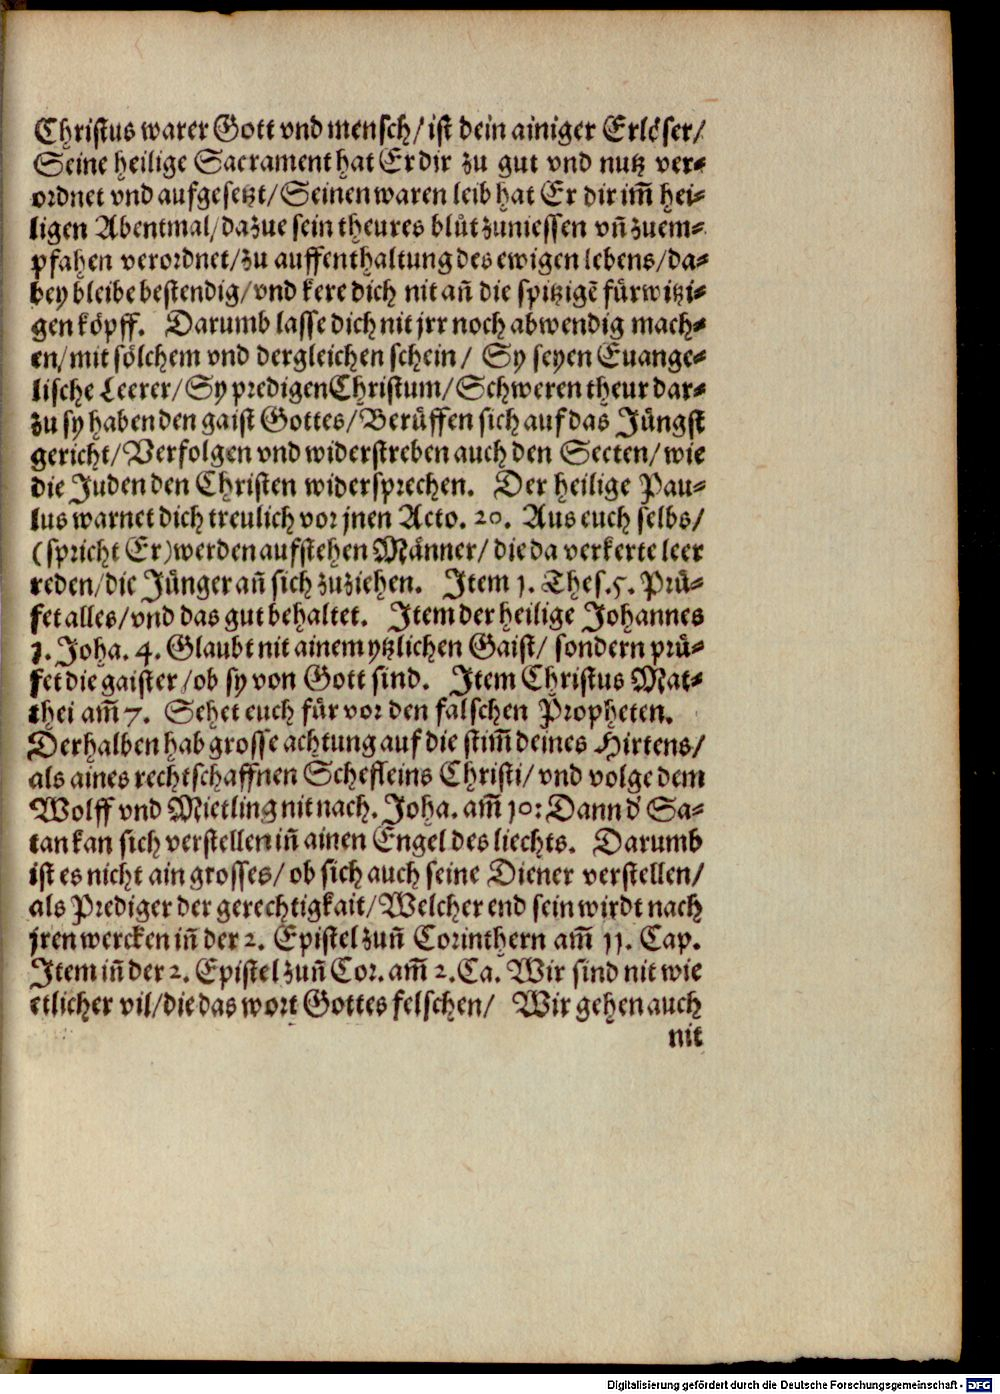 Christus warer Gott vnd mensch/ ist dein ainiger Erlöser/
Seine heilige Sacrament hat Er dir zu gut vnd nutz ver⸗
ordnet vnd aufgesetzt/ Seinen waren leib hat Er dir im̃ hei⸗
ligen Abentmal/ dazue sein theures blůt zuniessen vñ zuem⸗
pfahen verordnet/ zu auffenthaltung des ewigen lebens/ da⸗
bey bleibe bestendig/ vnd kere dich nit añ die spitzigẽ fürwitzi⸗
gen köpff. Darumb lasse dich nit jrr noch abwendig mach⸗
en/ mit sölchem vnd dergleichen schein/ Sy seyen Euange⸗
lische Leerer/ Sy predigen Christum/ Schweren theur dar⸗
zu sy haben den gaist Gottes/ Berůffen sich auf das Jüngst
gericht/ Verfolgen vnd widerstreben auch den Secten/ wie
die Juden den Christen widersprechen. Der heilige Pau⸗
lus warnet dich treulich vor jnen Acto. 20. Aus euch selbs/
(spricht Er) werden aufstehen Männer/ die da verkerte leer
reden/ die Jünger añ sich zuziehen. Item 1. Thes. 5. Prü⸗
fet alles/ vnd das gut behaltet. Item der heilige Johannes
1. Joha. 4. Glaubt nit ainem ytzlichen Gaist/ sondern prü⸗
fet die gaister/ ob sy von Gott sind. Item Christus Mat⸗
thei am̃ 7. Sehet euch für vor den falschen Propheten.
Derhalben hab grosse achtung auf die stim̃ deines Hirtens/
als aines rechtschaffnen Schefleins Christi/ vnd volge dem
Wolff vnd Mietling nit nach. Joha. am̃ 10: Dann d' Sa⸗
tan kan sich verstellen iñ ainen Engel des liechts. Darumb
ist es nicht ain grosses/ ob sich auch seine Diener verstellen/
als Prediger der gerechtigkait/ Welcher end sein wirdt nach
jren wercken iñ der 2. Epistel zuñ Corinthern am̃ 11. Cap.
Item iñ der 2. Epistel zuñ Cor. am̃ 2. Ca. Wir sind nit wie
etlicher vil/ die das wort Gottes felschen/ Wir gehen auch
nit
Digitalisierung gefördert durch die Deutsche Forschungsgemeinschaft - DFG